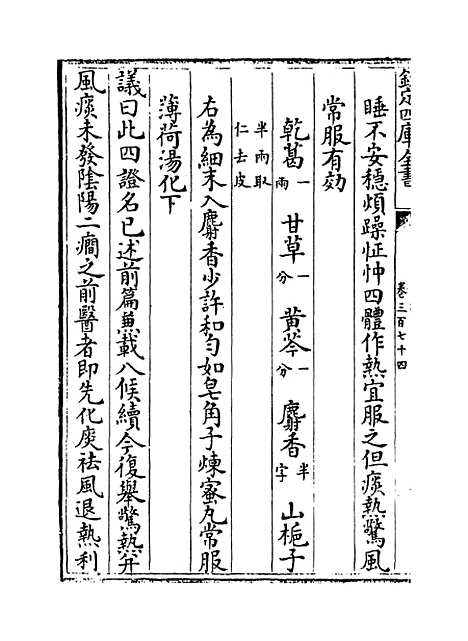 欽定四庫全書
卷三百七十四
睡不安穩煩躁怔忡四體作熱宜服之但痰熱驚風
常服有効
乾葛一兩 甘草一分 黄芩一分 麝香半字 山梔子
半兩取仁去皮
右為細末入麝香少許和勻如皂角子煉蜜丸常服
薄荷湯化下
議曰此四證名已述前篇兼載八候續今復舉驚熱并
風痰未發陰陽二癎之前醫者即先化痰祛風退熱利